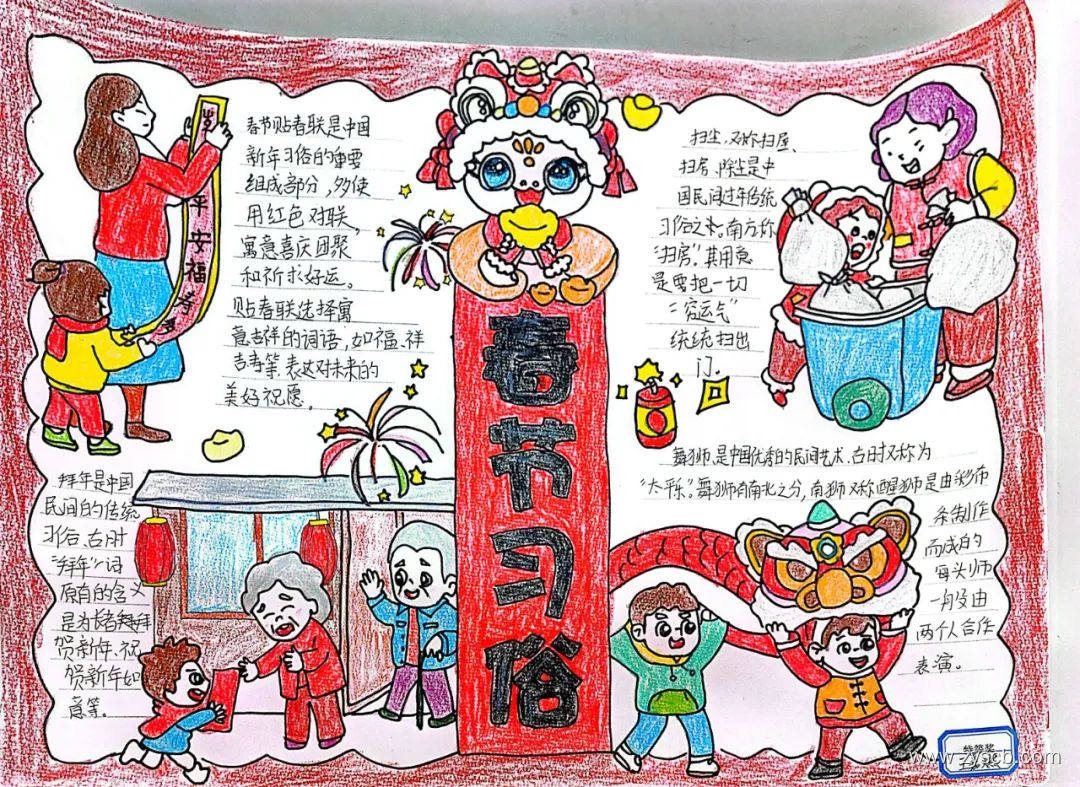 春节习俗
岁
平
安
福
寿
春节贴春联是中国
新年习俗的重要
组成部分,多使
用红色对联,
寓意喜庆团聚
和祈求好运。
贴春联选择寓
意吉祥的词语,如福、祥
吉寿等,表达对未来的
美好祝愿。
扫尘,又称扫屋、
扫房、除尘是中
国民间过年传统
习俗之一,南方称
"扫房"。其用意
是要把一切
"穷运气"
统统扫出
门。
拜年是中国
民间的传统
习俗,古时
"拜年"一词
原有的含义
是为长者拜
贺新年、祝
贺新年如
意等。
舞狮,是中国优秀的民间艺术、古时又称为
"太平乐"。舞狮有南北之分,南狮又称醒狮是由彩布
条制作
而成的
每头狮
一般由
两个人合作
表演。
特等奖
www.zyscb.com